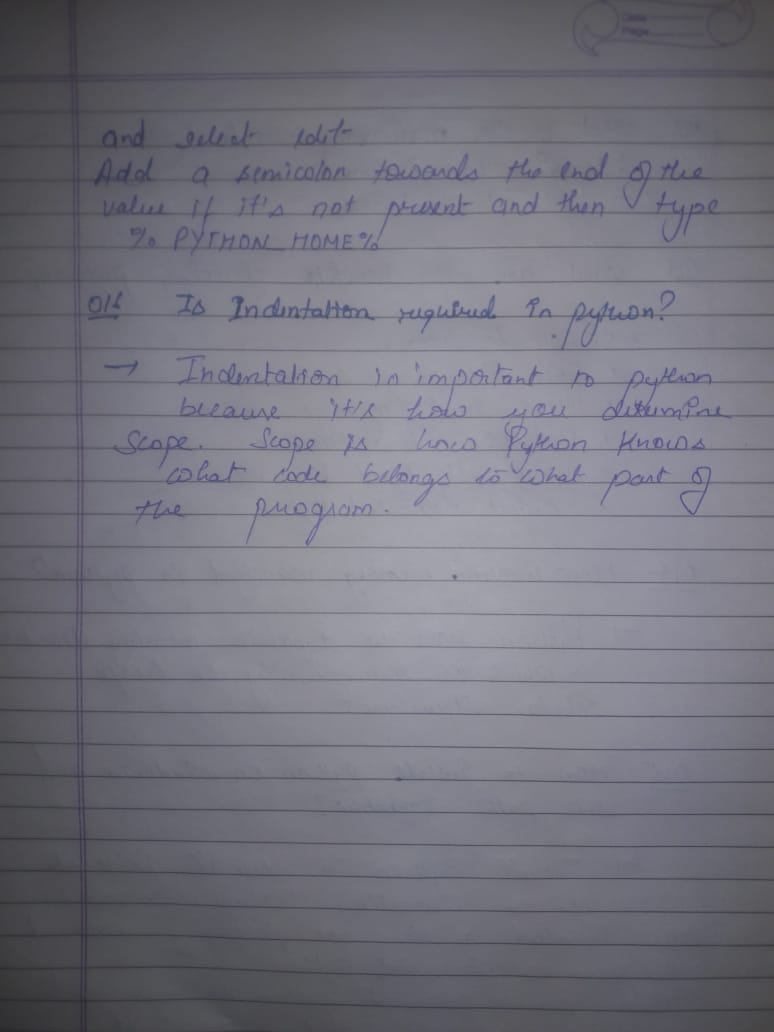 Date
Page
and select edit
Add a semicolon towards the end of the
value if it's not present and then type
% PYTHON_HOME%
Is Indentation required in python?
→ Indentation is important to python
because it's how you determine
scope. Scope is how Python knows
what code belongs to what part of
the program.